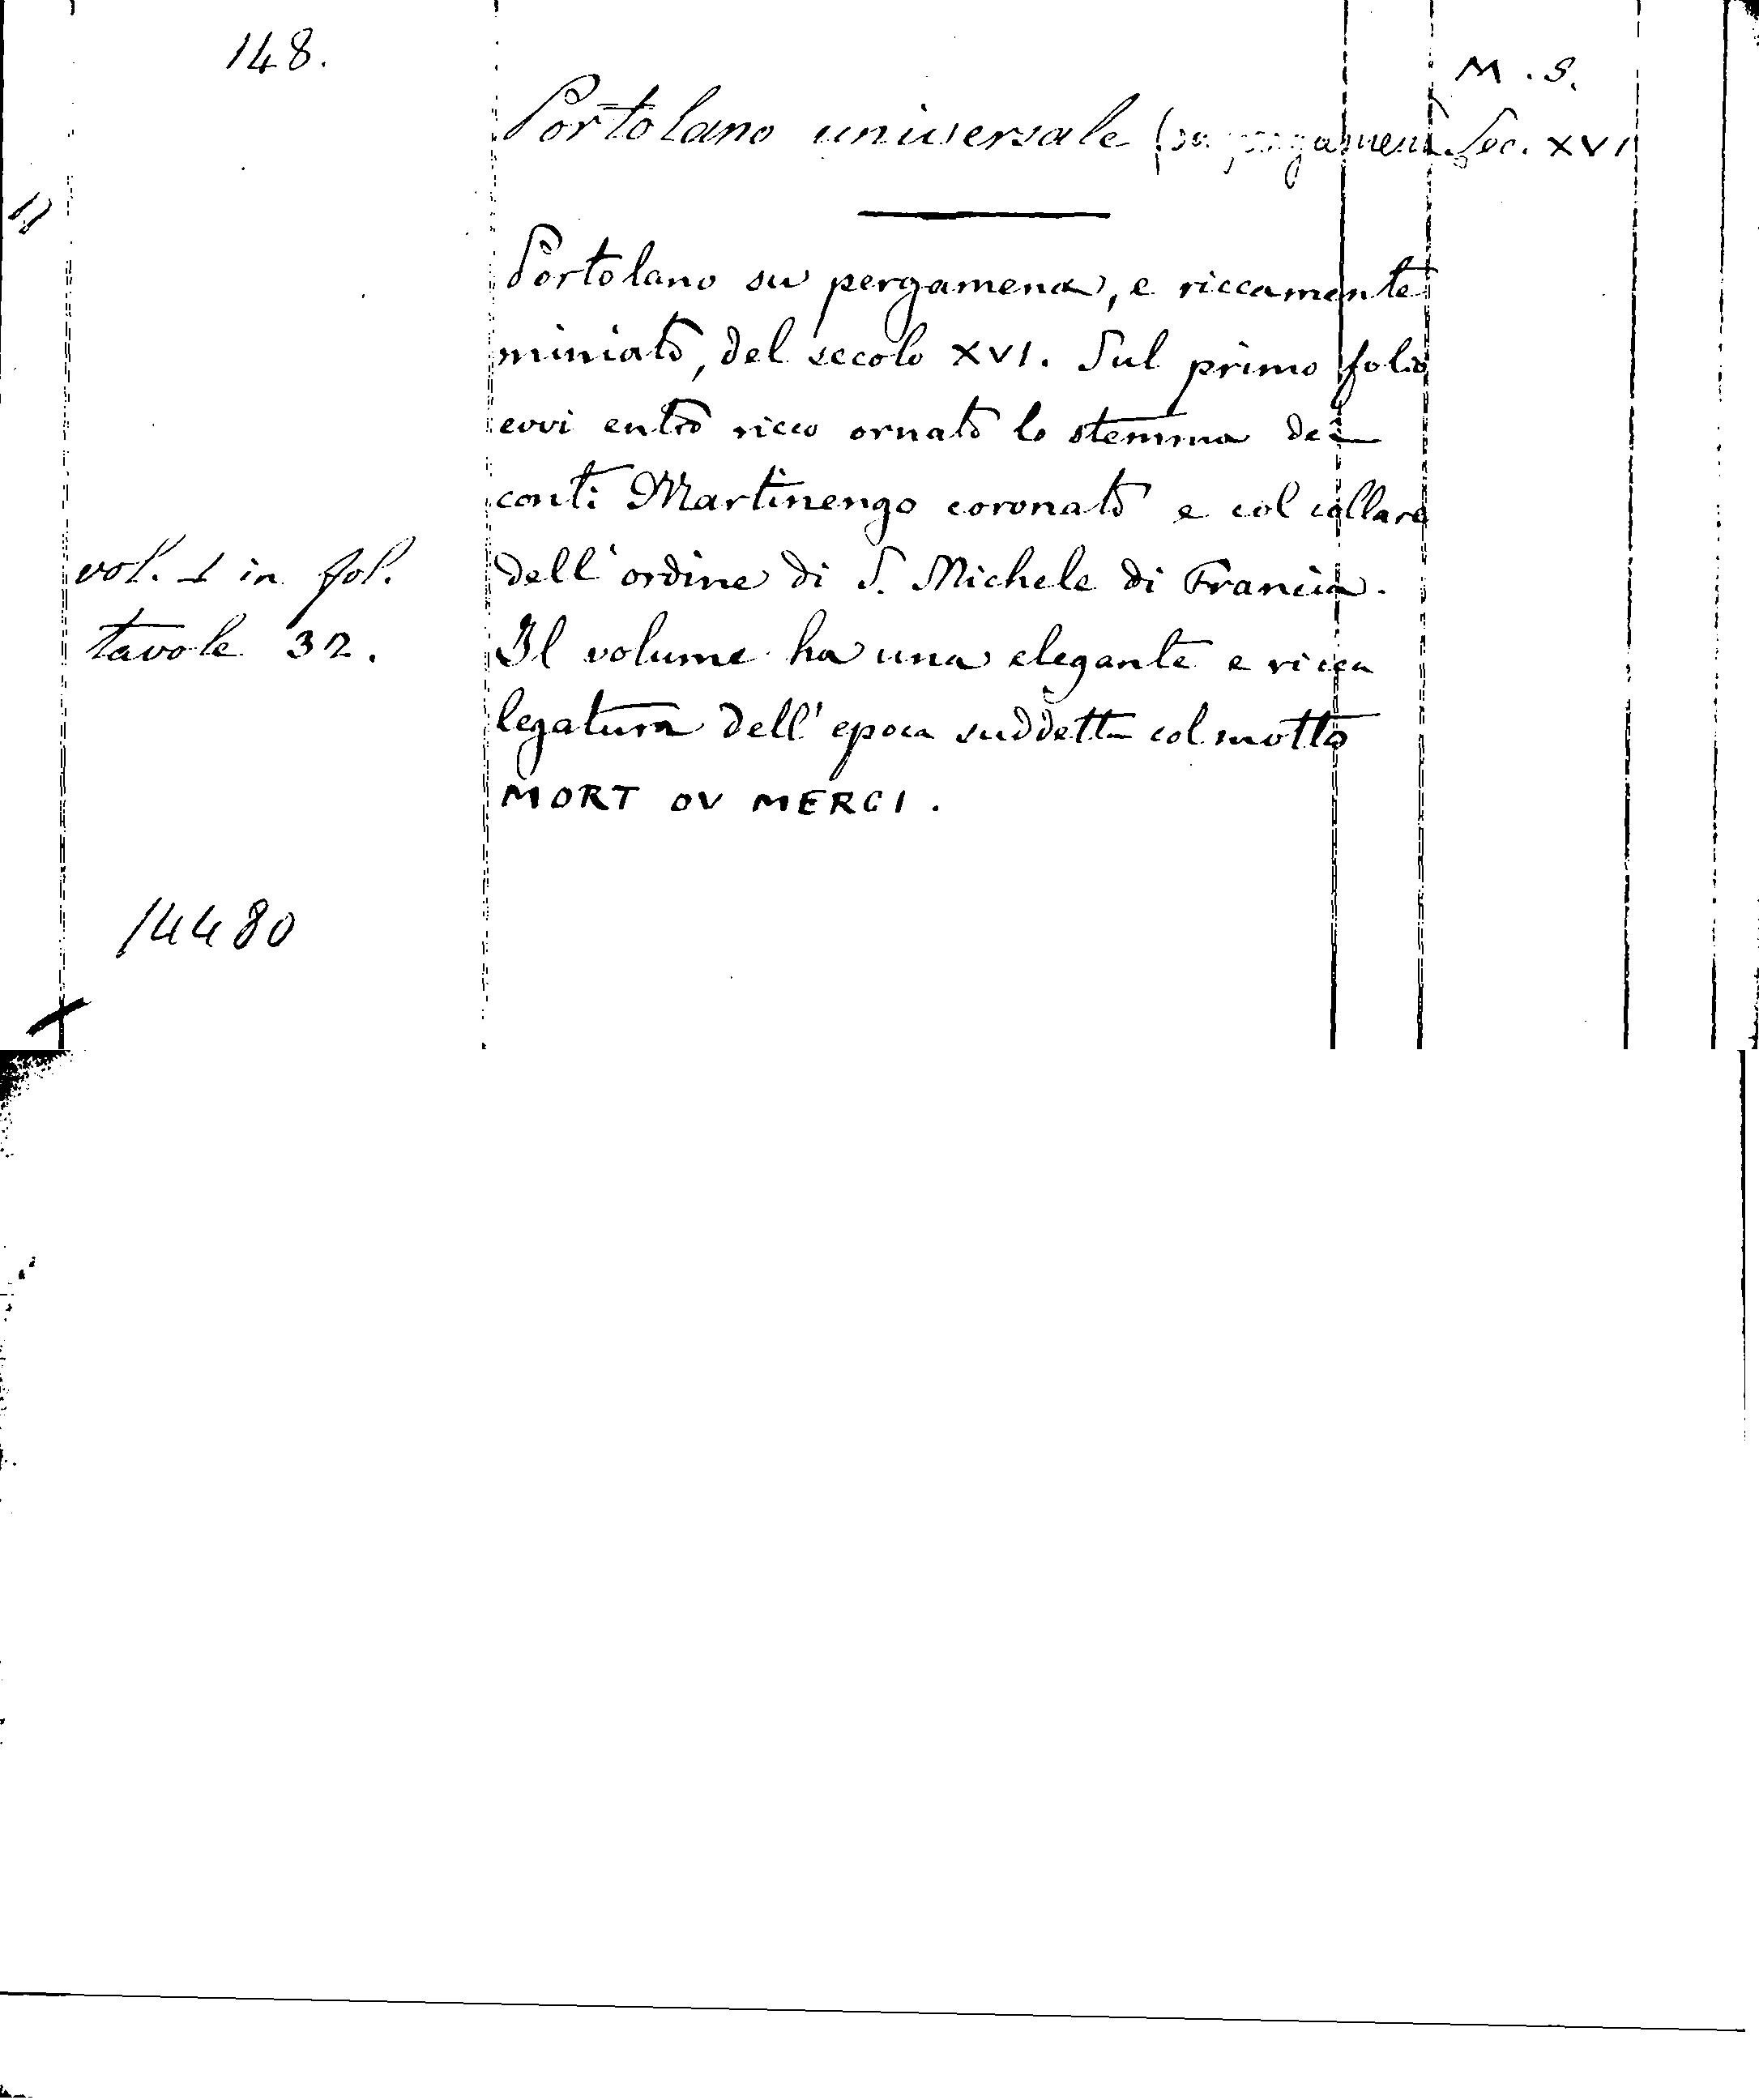 148.
M. S.
Portolano universale (su pergamen Sec. XVI
Portolano su pergamena, e riccamente
miniato, del secolo XVI. Sul primo folio
evvi entro ricco ornato lo stemma dei
conti Martinengo coronato e col collare
vol. 1 in fol.
dell'ordine di S. Michele di Francia.
tavole 32.
Il volume ha una elegante e ricca
legatura dell'epoca suddetta col motto
MORT OV MERCI.
14480